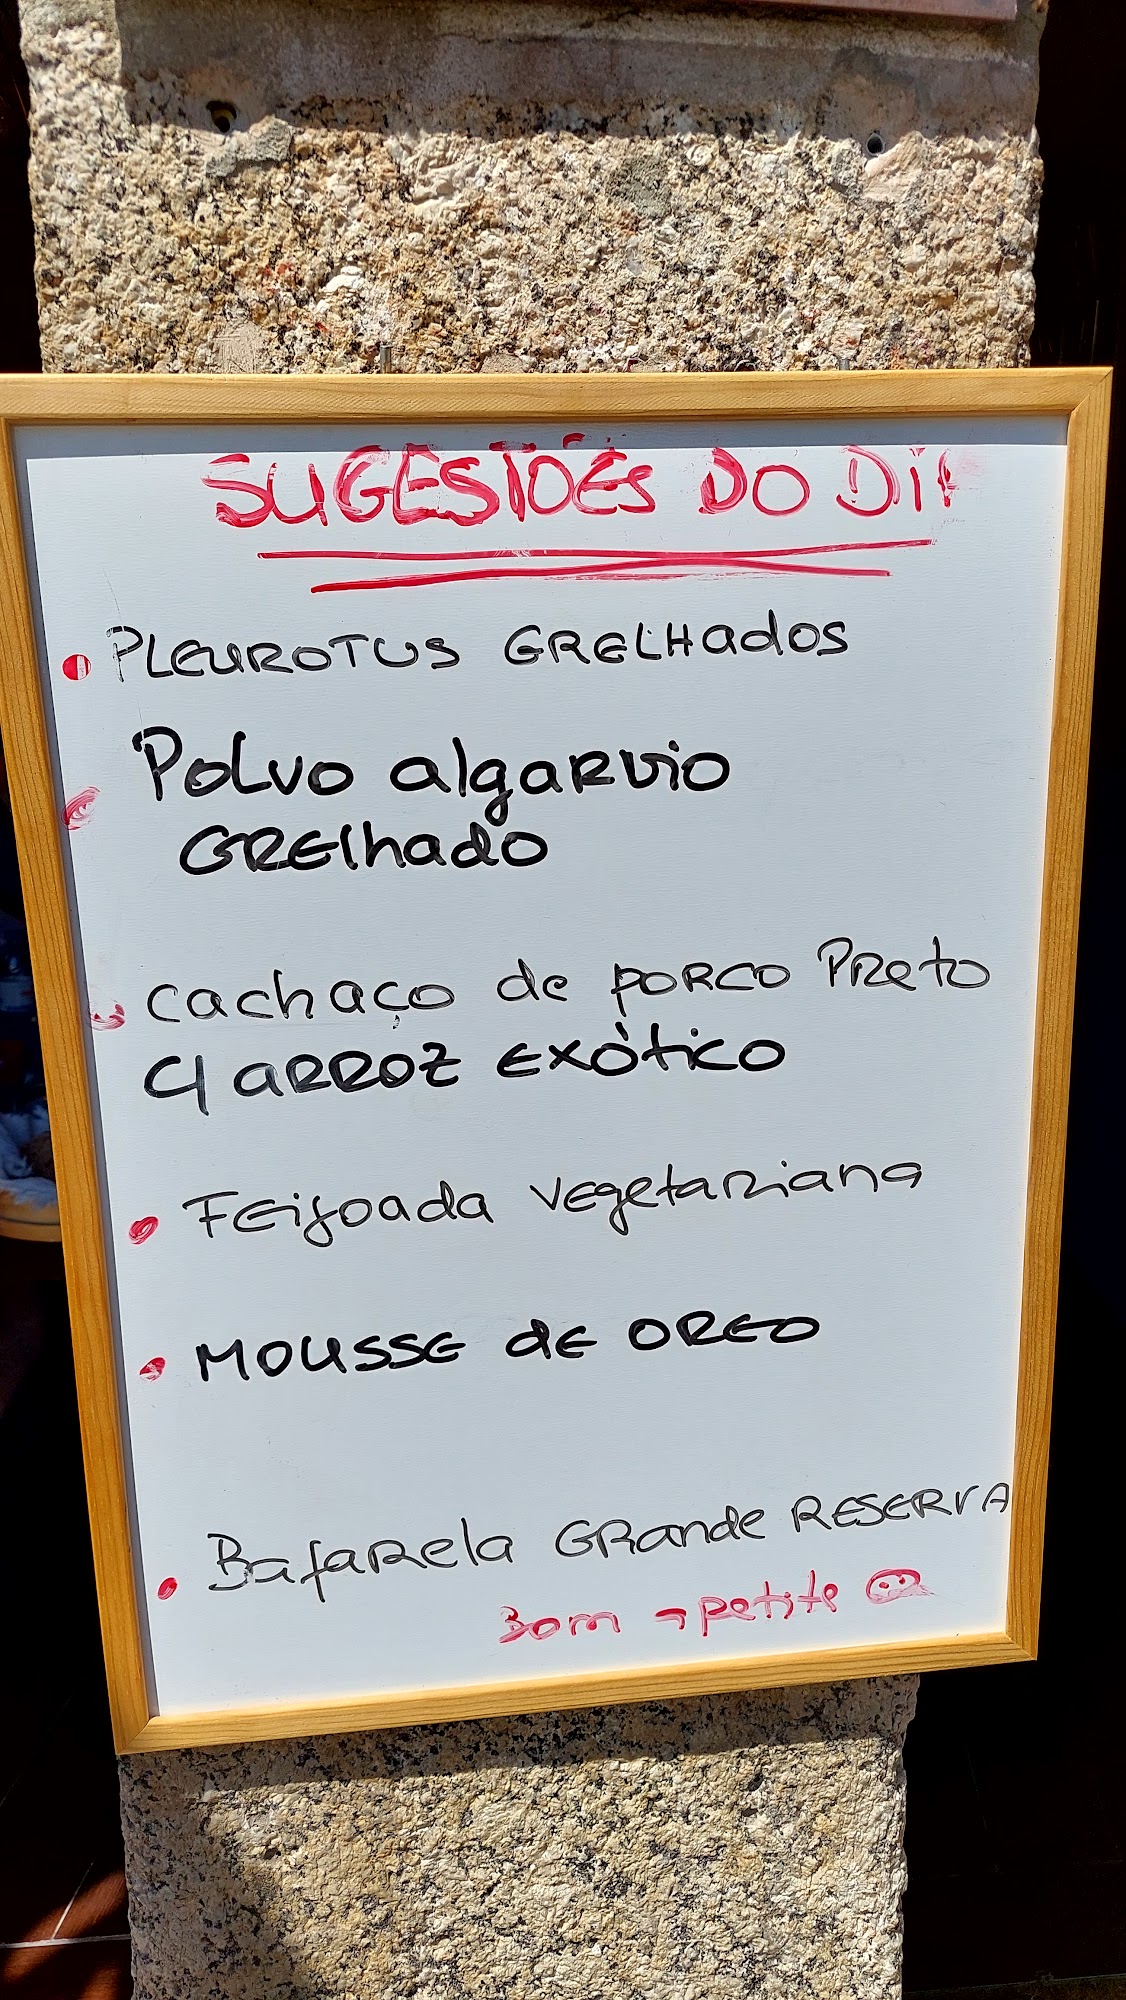 SUGESTÕES DO DiA
PLEUROTUS GRELHADOS
Polvo algarvio
GRElhado
cachaço de PORCO Preto
C/ ARROZ EXÓtico
FEijoada vegetariana
MOUSSE dE OREO
Bafarela GRande RESERVA
Bom apetite